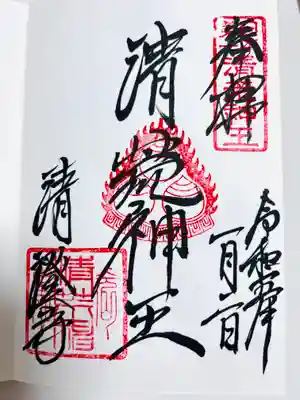 奉拝
令和五年
一月二日
清荒神王
清澄寺